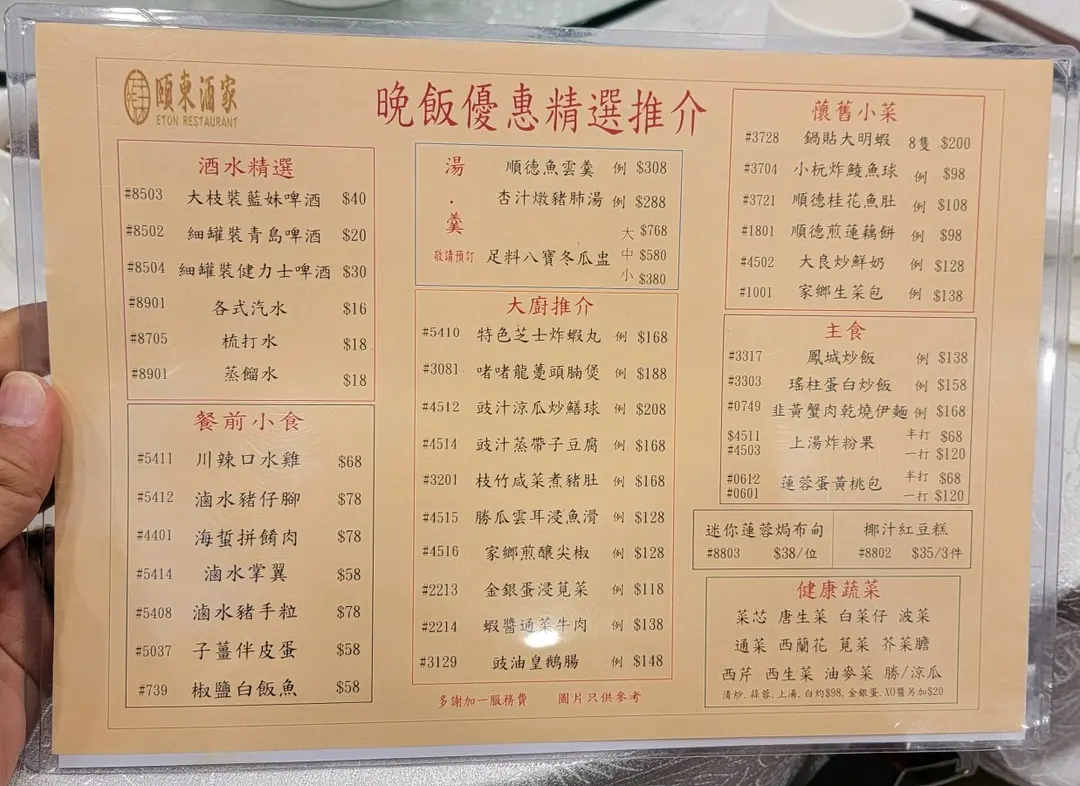 頤東酒家
ETON RESTAURANT
晚飯優惠精選推介
酒水精選
#8503 大枝裝藍妹啤酒 $40
#8502 細罐裝青島啤酒 $20
#8504 細罐裝健力士啤酒 $30
#8901 各式汽水 $16
#8705 梳打水 $18
#8901 蒸餾水 $18
餐前小食
#5411 川辣口水雞 $68
#5412 滷水豬仔腳 $78
#4401 海蜇拼餚肉 $78
#5414 滷水掌翼 $58
#5408 滷水豬手粒 $78
#5037 子薑伴皮蛋 $58
#739 椒鹽白飯魚 $58
湯.羹
順德魚雲羹 例 $308
杏汁燉豬肺湯 例 $288
敬請預訂 足料八寶冬瓜盅
大 $768
中 $580
小 $380
大廚推介
#5410 特色芝士炸蝦丸 例 $168
#3081 啫啫龍躉頭腩煲 例 $188
#4512 豉汁涼瓜炒鱔球 例 $208
#4514 豉汁蒸帶子豆腐 例 $168
#3201 枝竹咸菜煮豬肚 例 $168
#4515 勝瓜雲耳浸魚滑 例 $128
#4516 家鄉煎釀尖椒 例 $128
#2213 金銀蛋浸莧菜 例 $118
#2214 蝦醬通菜牛肉 例 $138
#3129 豉油皇鵝腸 例 $148
多謝加一服務費 圖片只供參考
懷舊小菜
#3728 鍋貼大明蝦 8隻 $200
#3704 小杬炸鯪魚球 例 $98
#3721 順德桂花魚肚 例 $108
#1801 順德煎蓮藕餅 例 $98
#4502 大良炒鮮奶 例 $128
#1001 家鄉生菜包 例 $138
主食
#3317 鳳城炒飯 例 $138
#3303 瑤柱蛋白炒飯 例 $158
#0749 韭黃蟹肉乾燒伊麵 例 $168
$4511 上湯炸粉果 半打 $68
#4503 一打 $120
#0612 蓮蓉蛋黃桃包 半打 $68
#0601 一打 $120
迷你蓮蓉焗布甸
#8803 $38/位
椰汁紅豆糕
#8802 $35/3件
健康蔬菜
菜芯 唐生菜 白菜仔 波菜
通菜 西蘭花 莧菜 芥菜膽
西芹 西生菜 油麥菜 勝/涼瓜
清炒、蒜蓉、上湯、白灼$98、金銀蛋、XO醬另加$20